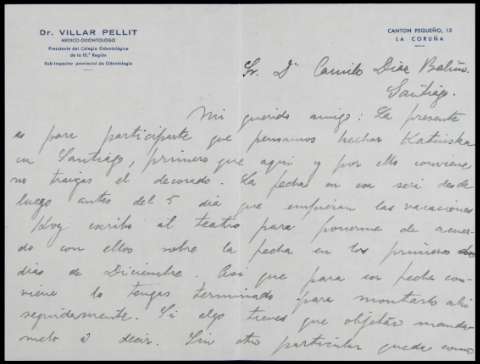 Dr. VILLAR PELLIT
MEDICO-ODONTOLOGO
Presidente del Colegio Odontológico
de la 10.ª Región
Sub-Inspector provincial de Odontología
CANTON PEQUEÑO, 13
LA CORUÑA
Sr. Dn Camilo Diaz Baliño.
Santiago.
Mi querido amigo: La presente
es para participarte que pensamos hechar Katiuska
en Santiago, primero que aqui y por ello conviene
no traigas el decorado. La fecha en esa será desde
luego antes del 5 dia que empiezan las vacaciones
Hoy escribo al teatro para ponerme de acuer-
do con ellos sobre la fecha en los primeros
dias de Diciembre. Asi que para esa fecha con-
viene lo tengas terminado para montarlo alli
seguidamente. Si algo tienes que objetar manda-
melo á decir. Sin otro particular queda como